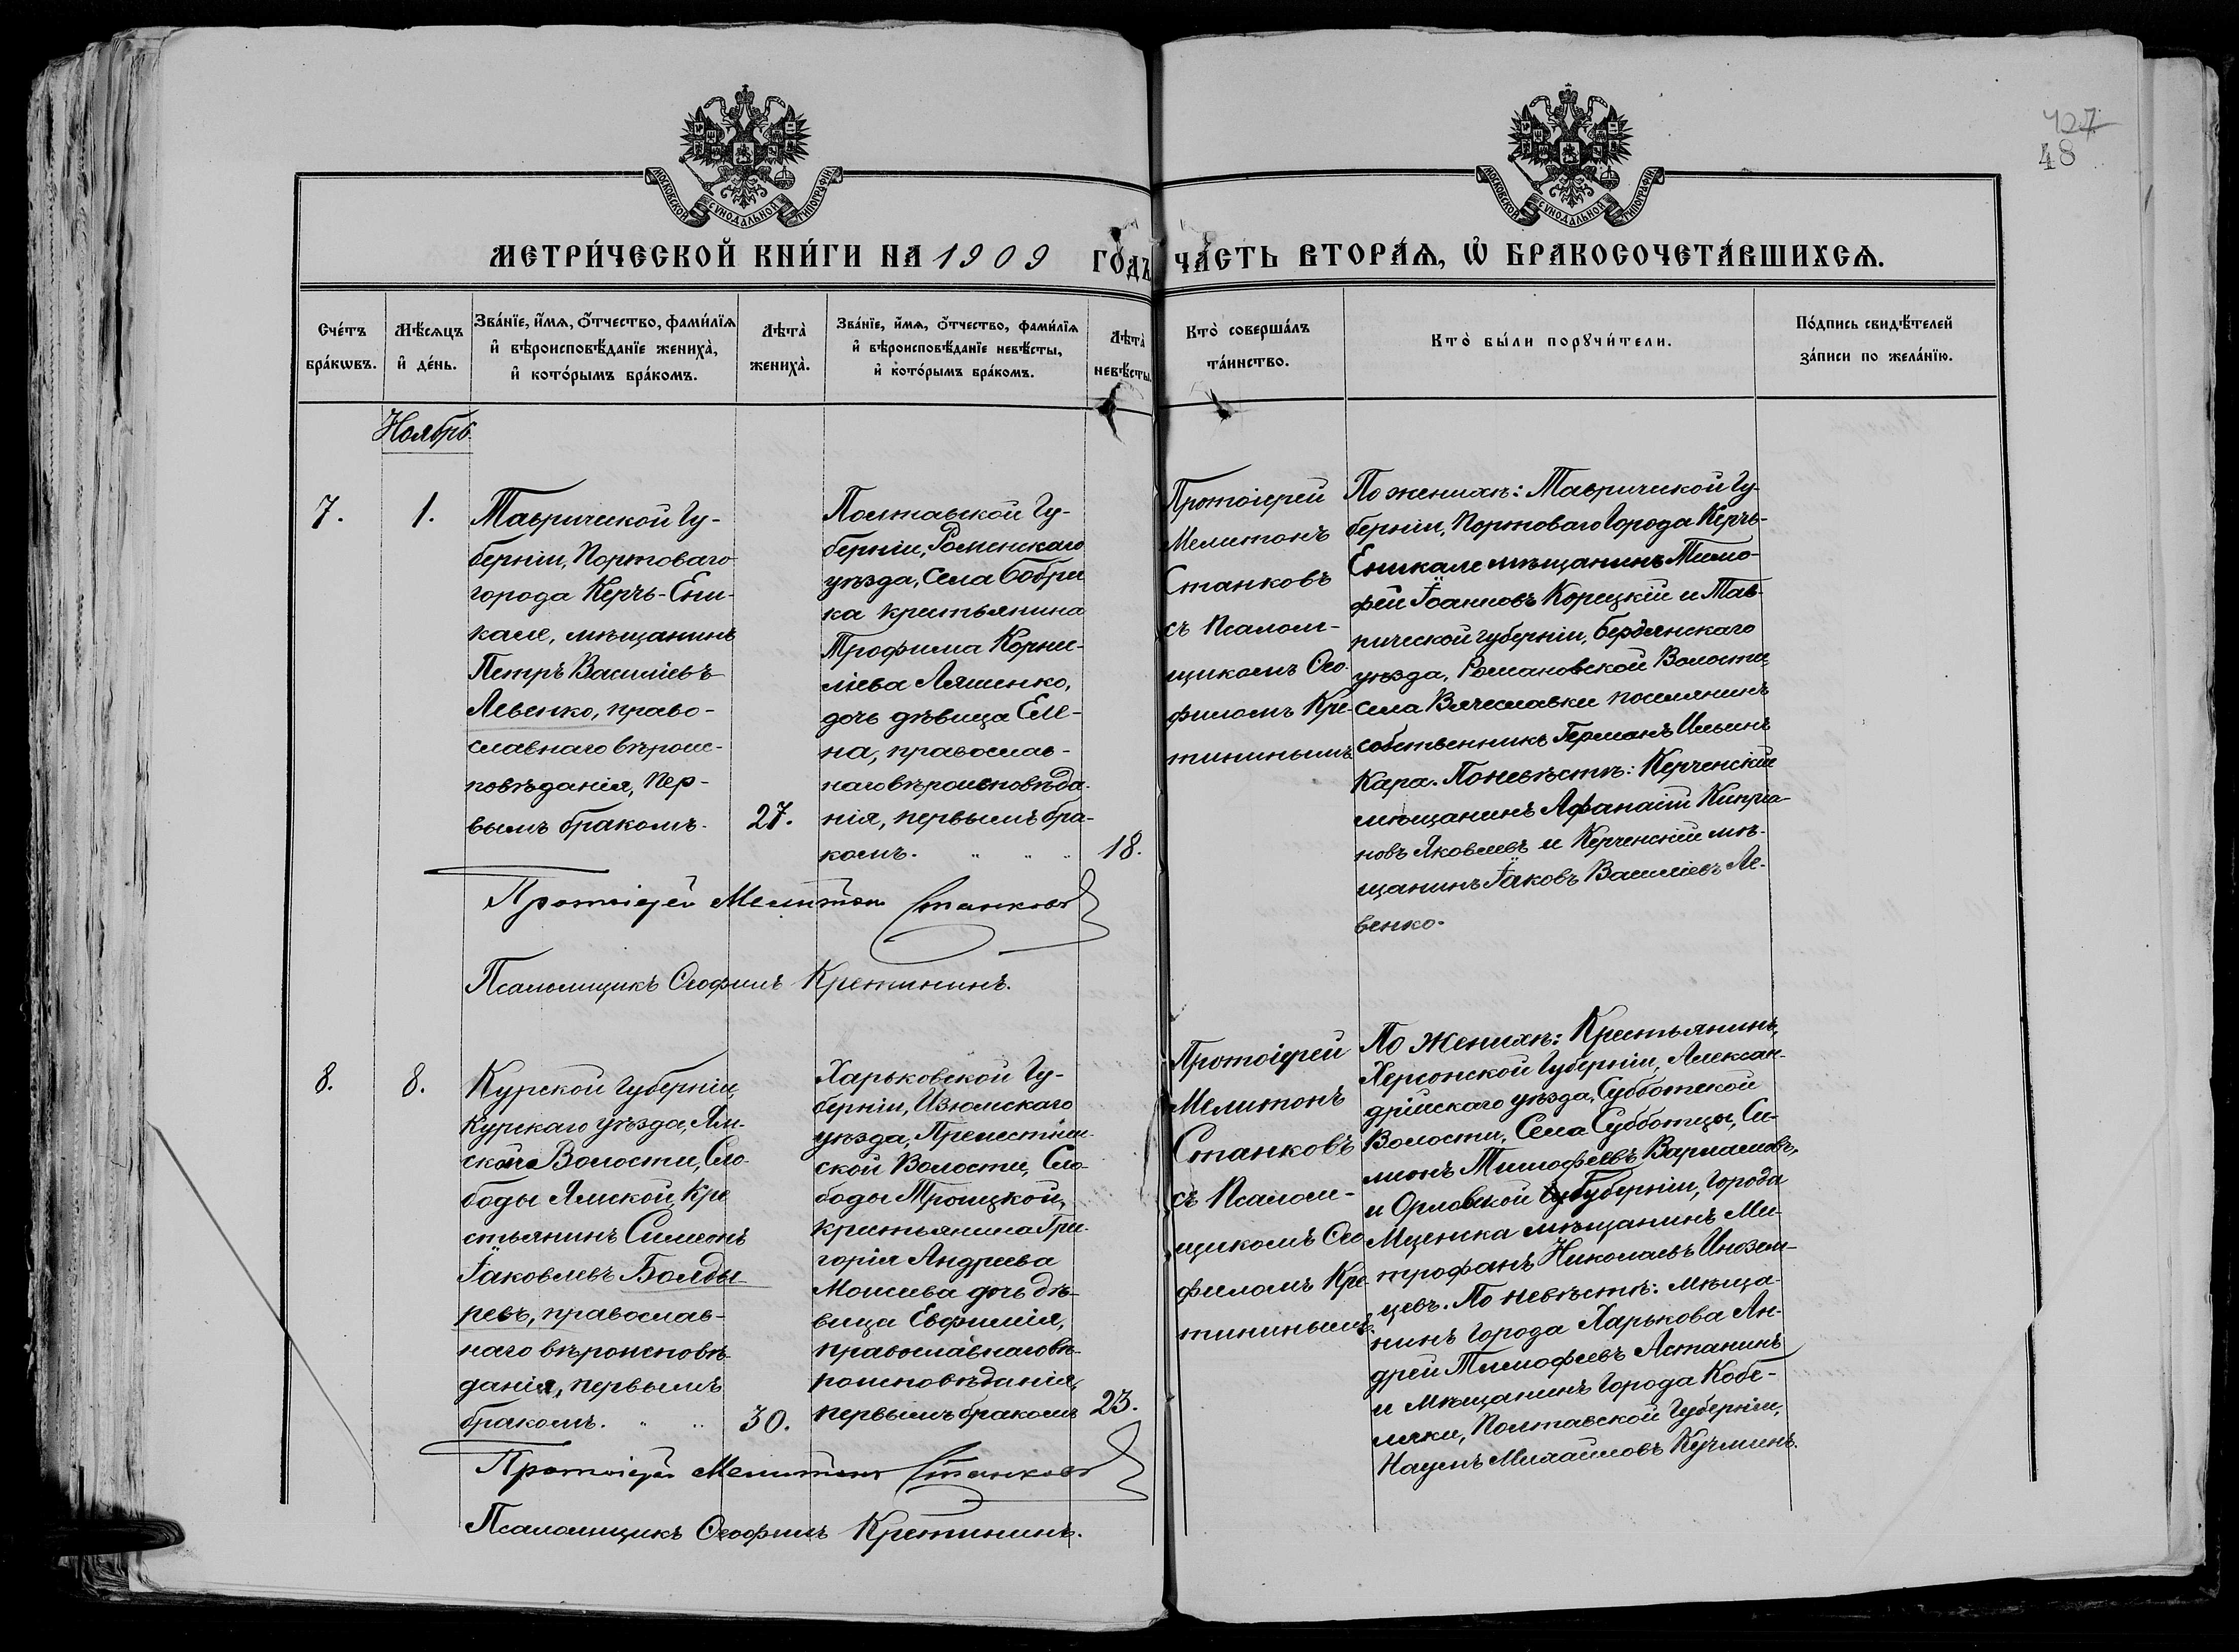 427
48
МОСКОВСКОЙ СѴНОДАЛЬНОЙ ТИПОГРАФІИ
МОСКОВСКОЙ СѴНОДАЛЬНОЙ ТИПОГРАФІИ
МЕТРИ́ЧЕСКОЙ КНИ́ГИ НА 1909 ГО́ДЪ ЧА́СТЬ ВТОРА́Ѧ, Ѽ БРАКОСОЧЕТА́ВШИХСѦ.
Сче́тъ
бра́кѡвъ.
Мѣ́сѧцъ
и҆ де́нь.
Зва́нїе, и҆́мѧ, ѻ҆́тчество, фами́лїѧ
и҆ вѣроисповѣ́данїе жениха̀,
и҆ кото́рымъ бра́комъ.
Лѣта̀
жениха̀.
Зва́нїе, и҆́мѧ, ѻ҆́тчество, фами́лїѧ
и҆ вѣроисповѣ́данїе невѣ́сты,
и҆ кото́рымъ бра́комъ.
Лѣта̀
невѣ́сты.
Кто̀ соверша́лъ
та́инство.
Кто̀ бы́ли порꙋчи́тели.
По́дпись свидѣ́телей
за́писи по жела́нїю.
Ноябрь
7.
1.
Таврической Гу-
берніи, Портоваго
города Керчь-Ени-
кале, мѣщанинъ
Петръ Василіевъ
Левенко, право-
славнаго вѣроис-
повѣданія, пер-
вымъ бракомъ.
27.
Полтавской Гу-
берніи, Роменскаго
уѣзда, Села Бобри
ка крестьянина
Трофима Корни-
ліева Ляшенко,
дочь дѣвица Еле-
на, православ-
наго вѣроисповѣда-
нія, первымъ бра-
комъ.
18.
Протоіерей
Мелитонъ
Станковъ
съ Псалом-
щикомъ Ѳео-
филомъ Кре-
тининымъ
По женихѣ: Таврической Гу-
берніи, Портоваго Города Керчь-
Еникале мѣщанинъ Тимо-
фей Іоанновъ Корецкій и Тав-
рической губерніи, Бердянскаго
уѣзда, Романовской Волости,
села Вячеславки поселянинъ
собственникъ Германъ Ильинъ
Кара. По невѣстѣ: Керченскій
мѣщанинъ Афанасій Кипріа-
новъ Яковлевъ и Керченскій мѣ-
щанинъ Іаковъ Василіевъ Ле-
венко.
Протоіерей Мелитонъ Станковъ
Псаломщикъ Ѳеофилъ Кретининъ.
8.
8.
Курской Губерніи,
Курскаго уѣзда, Ям-
ской Волости, Сло-
боды Ямской, кре
стьянинъ Симеонъ
Іаковлевъ Болды-
ревъ, православ-
наго вѣроисповѣ-
данія, первымъ
бракомъ.
30.
Харьковской Гу-
берніи, Изюмскаго
уѣзда,
ской Волости, Сло-
боды Троицкой,
крестьянина Гри-
горія Андреева
Моисеева дочь дѣ-
вица Евфимія,
православнаго вѣ-
роисповѣданія,
первымъ бракомъ
23.
Протоіерей
Мелитонъ
Станковъ
съ Псалом-
щикомъ Ѳео
филомъ Кре-
тининымъ.
По Женихѣ: Крестьянинъ,
Херсонской Губерніи, Алексан-
дрійскаго уѣзда, Субботской
Волости, Села Субботцы, Си-
меонъ Тимофеевъ
и Орловской губерніи, города
Мценска мѣщанинъ Ми-
трофанъ Николаевъ Инозем-
цевъ. По невѣстѣ: мѣща-
нинъ города Харькова Ан-
дрей Тимофеевъ Астанинъ
и Мѣщанинъ города Кобе-
ляки, Полтавской Губерніи,
Наумъ Михаиловъ Кузминъ.
Протоіерей Мелитонъ Станковъ
Псаломщикъ Ѳеофилъ Кретининъ.